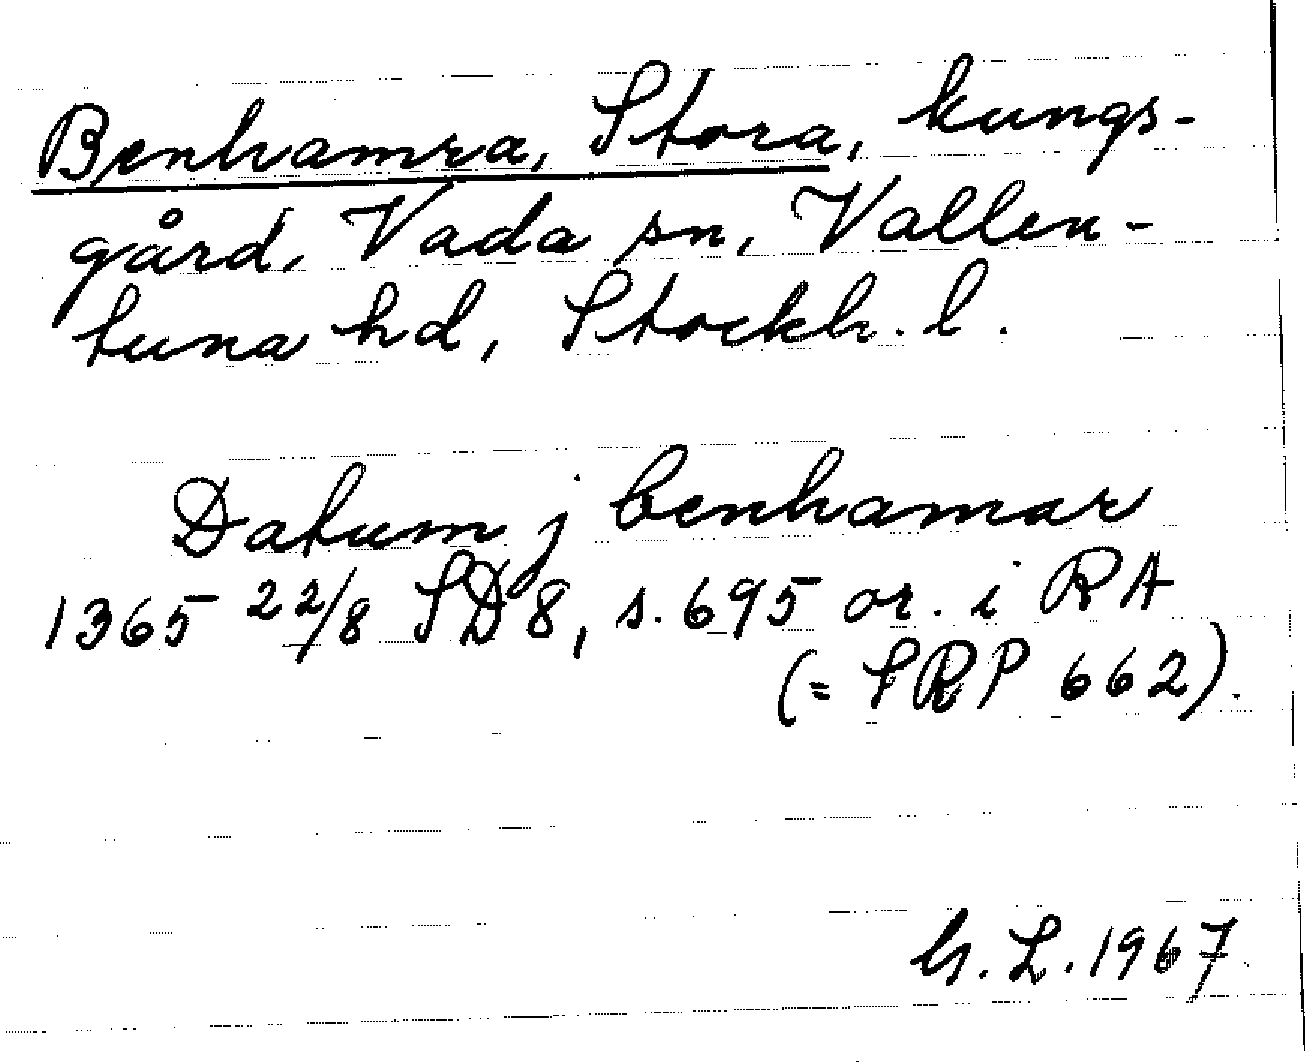 Benhamra, Stora, kungs-
gård, Vada sn, Vallen-
tuna hd, Stockh. l.
Datum j benhamar
1365 22/8 SD 8, s. 695 or. i RA
(= SRP 662).
G. L. 1967